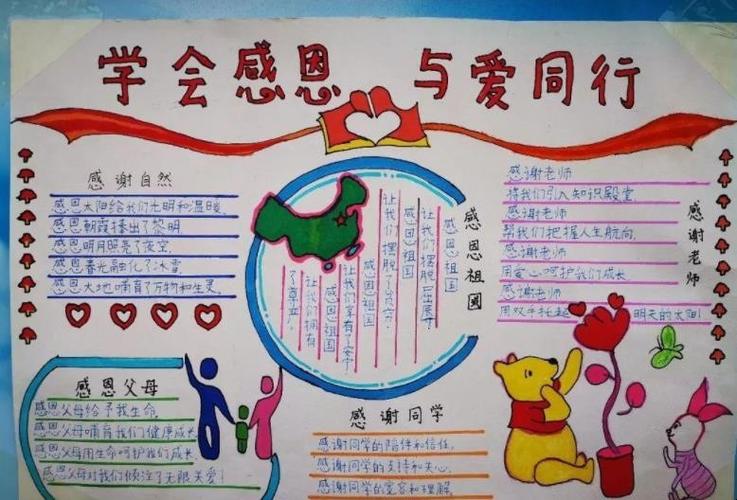 学会感恩 与爱同行
感谢自然
感恩太阳给我们光明和温暖,
感恩朝霞捧出了黎明
感恩明月照亮了夜空,
感恩春光融化了冰雪,
感恩大地哺育了万物和生灵.
感恩祖国
感恩祖国
让我们摆脱了屈辱了
感恩祖国
让我们摆脱了贫穷.
感恩祖国
让我们享有了安宁
感恩祖国
让我们拥有
了尊严.
感谢老师
感谢老师
将我们引入知识殿堂.
感谢老师
帮我们把握人生航向,
感谢老师
用爱心呵护我们成长
感谢老师
用双手托起 明天的太阳!
感恩父母
感恩父母给予我生命,
感恩父母哺育我们健康成长
感恩父母用生命呵护我们成长,
感恩父母对我们倾注了无限关爱!
感谢同学
感谢同学的陪伴和信任,
感谢同学的支持和关心,
感谢同学的宽容和理解,